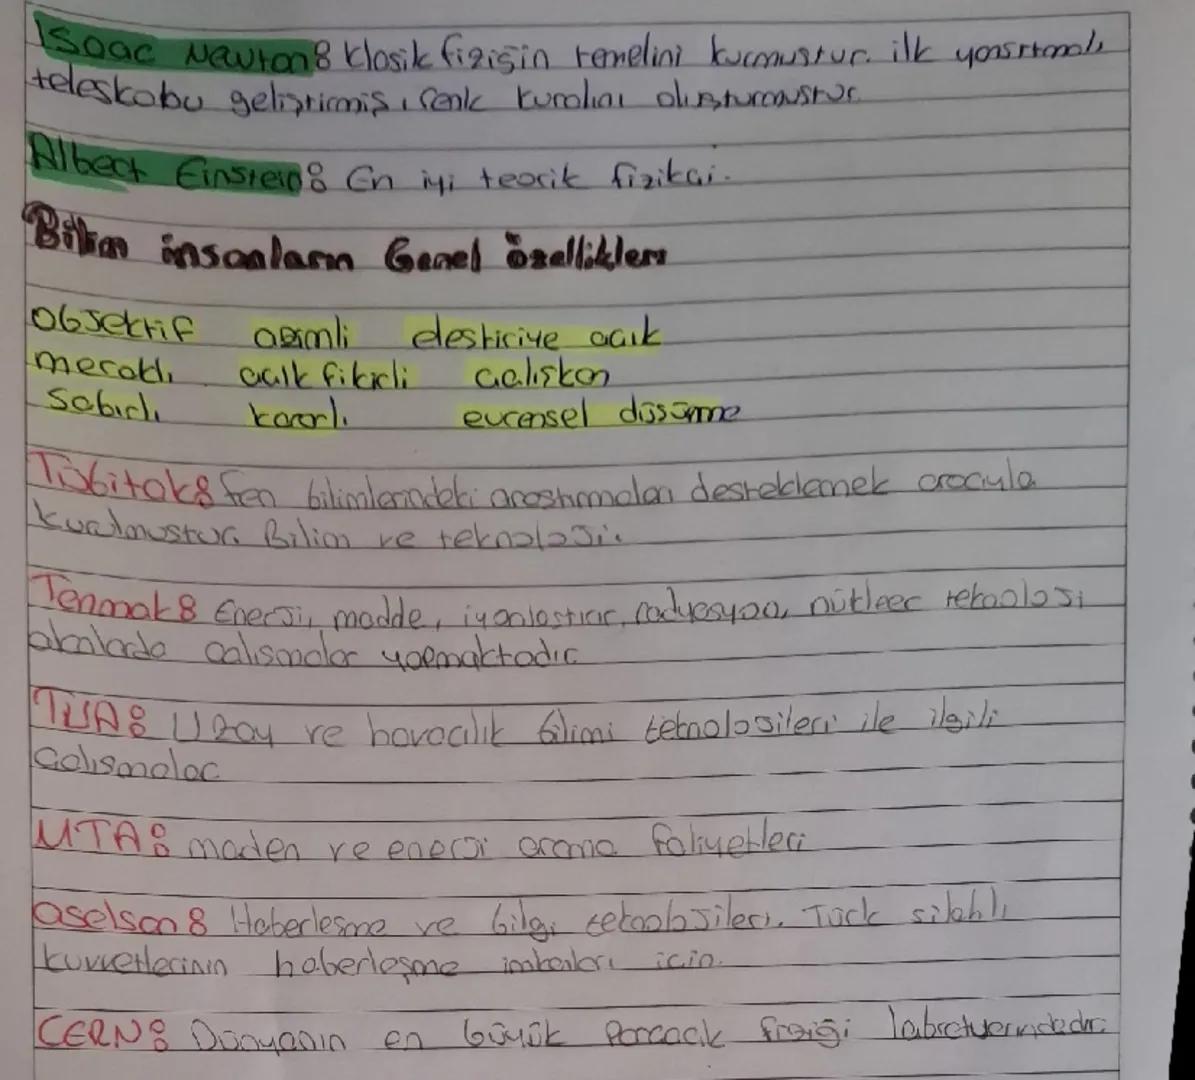 Isaac Newton: klasik fiziğin temelini kurmuştur. ilk yansıtmalı
teleskobu geliştirmiş, renk kuralını oluşturmuştur
Albert Einstein: En iyi teorik fizikçi.
Bilim insanların Genel özellikleri
Objektif azimli eleştiriye açık
meraklı açık fikirli çalışkan
Sabırlı kararlı evrensel düşünme
Tübitak: Fen bilimlerindeki araştırmaları desteklemek aracıyla
kurulmuştur. Bilim ve teknoloji.
Tenmak: Enerji, madde, iyonlaştırıcı, radyasyon, nükleer teknoloji
alanlarda çalışmalar yapmaktadır
TUA: Uzay ve havacılık bilimi teknolojileri ile ilgili
Çalışmalar
MTA: maden ve enerji arama faliyetleri
aselsan: Haberleşme ve bilgi teknolojileri. Türk silahlı
kuvvetlerinin haberleşme imkanları için.
CERN: Dünyanın en büyük Parçacık fiziği